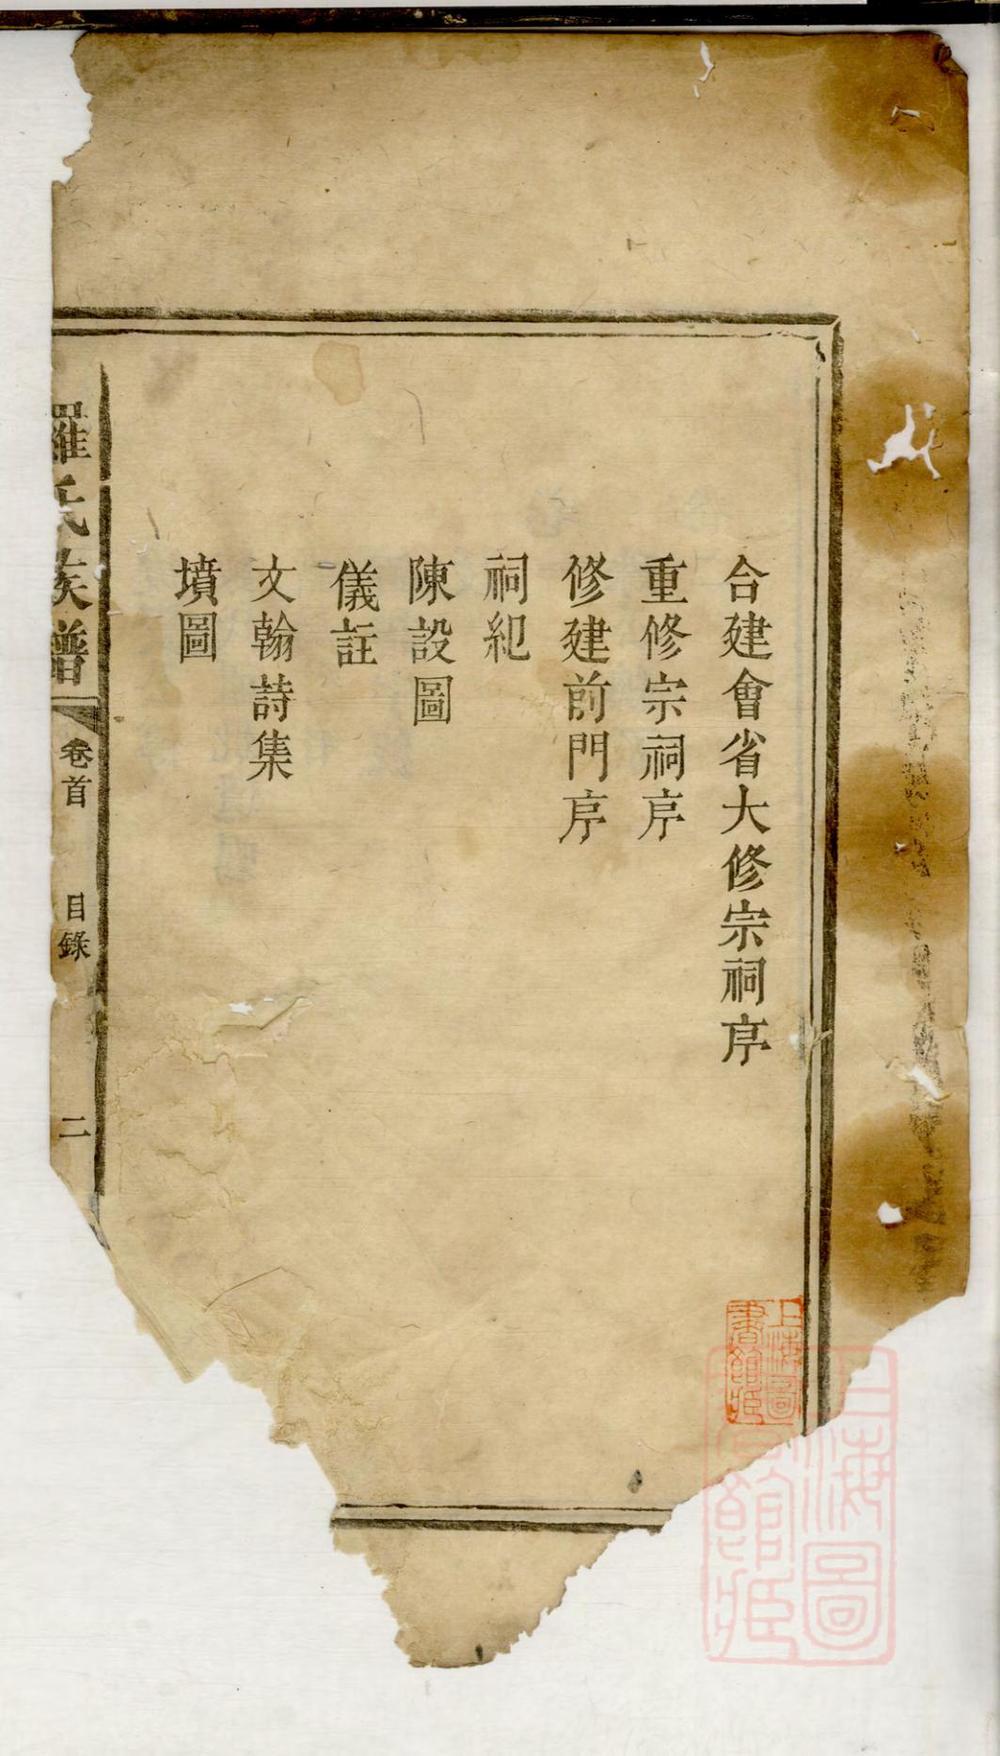 合建會省大修宗祠序
重修宗祠序
修建前門序
祠紀
陳設圖
儀註
文翰詩集
墳圖
羅氏族譜
卷首
目錄
二
上海圖
書館藏
上海圖
書館藏